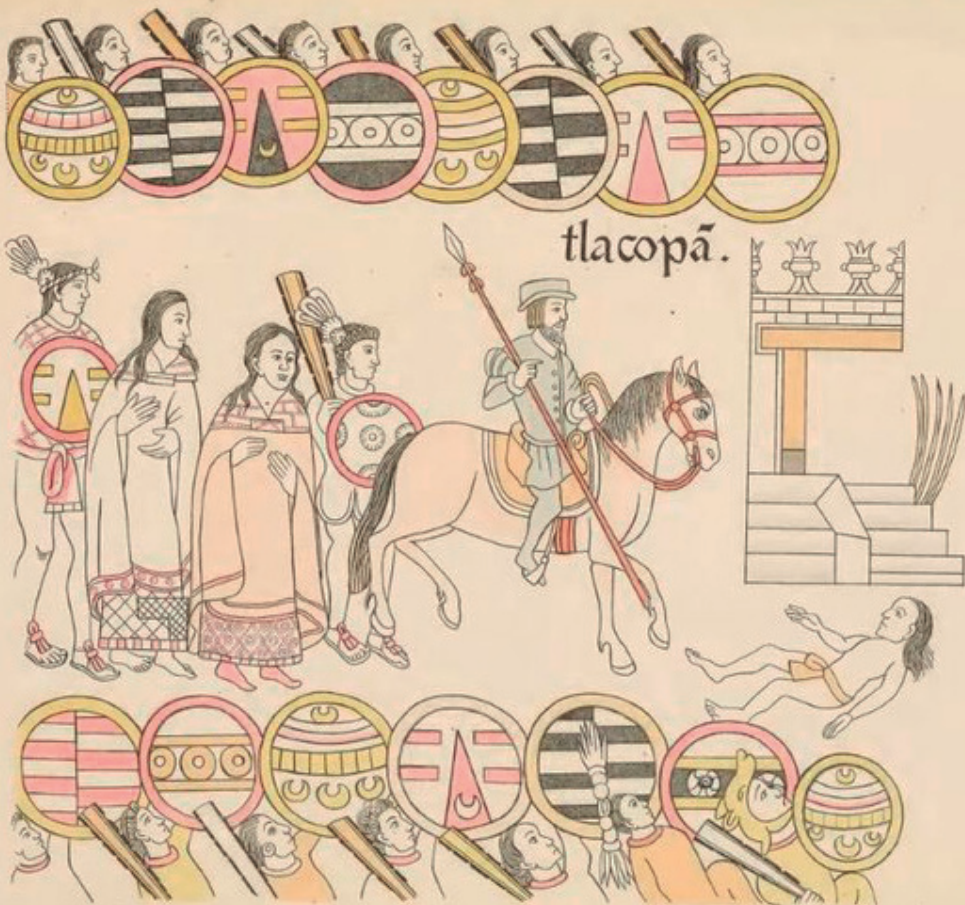 tlacopã.